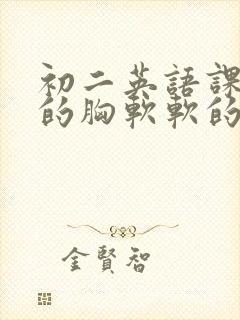 初二英語課
的胸軟軟的
金賢智